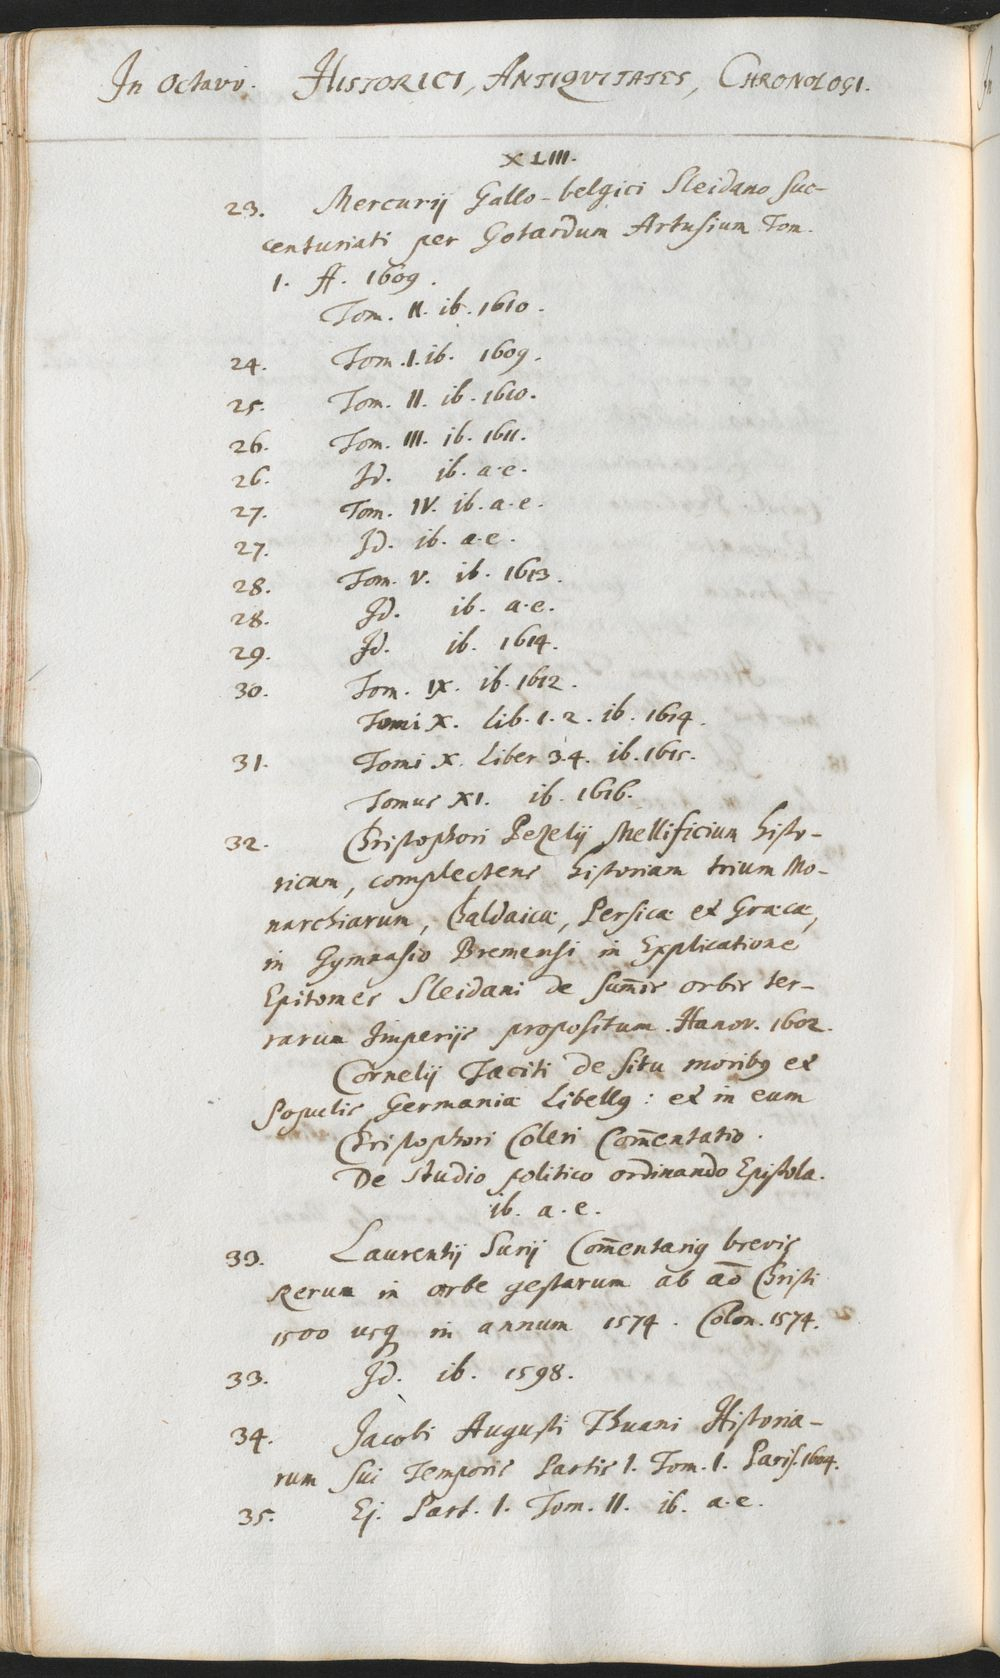 In Octavo. HISTORICI, ANTIQVITATES, CHRONOLOGI.
XLIII.
23. Mercurij Gallo-belgici Sleidano suc-
centuriati per Gotardum Artusium Tom.
1. ff. 1609.
Tom. II. ib. 1610.
24. Tom. I. ib. 1609.
25. Tom. II. ib. 1610.
26. Tom. III. ib. 1611.
26. Id. ib. a.e.
27. Tom. IV. ib. a.e.
27. Id. ib. a.e.
28. Tom. V. ib. 1613.
28. Id. ib. a.e.
29. Id. ib. 1614.
30. Tom. IX. ib. 1612.
Tomi X. lib. 1. 2. ib. 1614.
31. Tomi X. Liber 3.4. ib. 1615.
Tomus XI. ib. 1616.
32. Christophori Pezelij Mellificium histo-
ricum, complectens historiam trium Mo-
narchiarum, Chaldaicæ, Persicæ et Græcæ,
in Gymnasio Bremensi in Explicatione
Epitomes Sleidani de sum̄is orbis ter-
rarum Imperijs propositum. Hanov. 1602.
Cornelij Taciti de situ moribꝯ et
populis Germaniæ Libellꝯ: et in eum
Christophori Coleri Com̄entatio.
De studio politico ordinando Epistola.
ib. a.e.
33. Laurentij Surij Com̄entariꝯ brevis
Rerum in orbe gestarum ab aō Christi
1500 usq̨ in annum 1574. Colon. 1574.
33. Id. ib. 1598.
34. Jacobi Augusti Thuani Historia-
rum sui Temporis Partis I. Tom. I. Paris. 1604.
35. Ej. Part. I. Tom. II. ib. a.e.